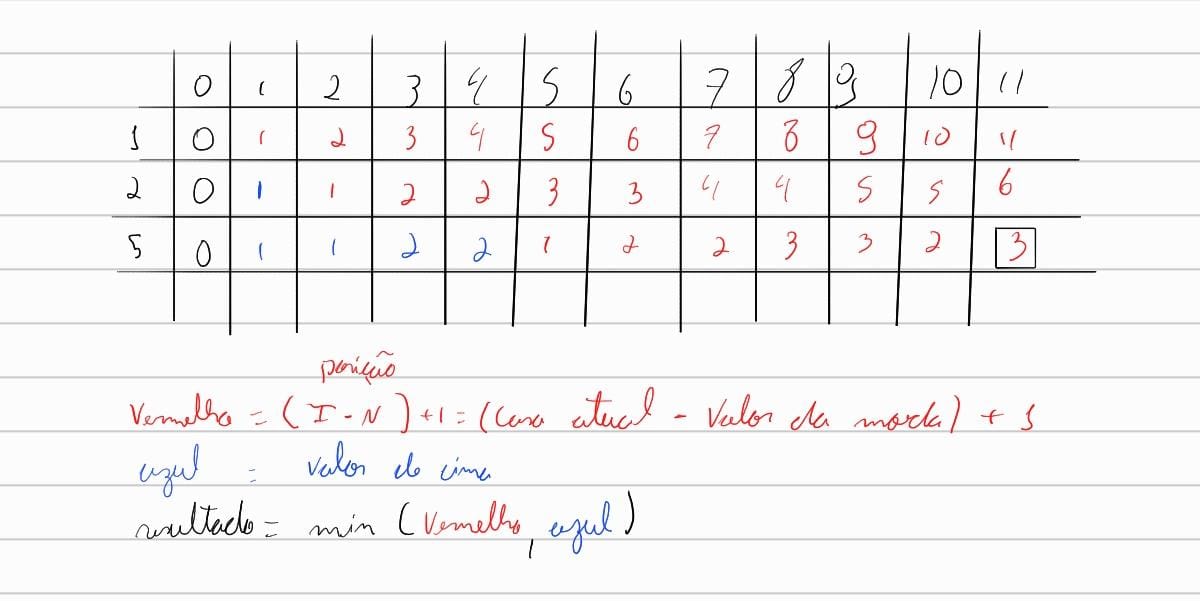 0 1 2 3 4 5 6 7 8 9 10 11
1 0 1 2 3 4 5 6 7 8 9 10 11
2 0 1 1 2 2 3 3 4 4 5 5 6
5 0 1 1 2 2 1 2 2 3 3 2 3
posição
Vermelho = (I - N) +1 = (Casa atual - Valor da moeda) + 1
azul = valor de cima
resultado = min (Vermelho, azul)